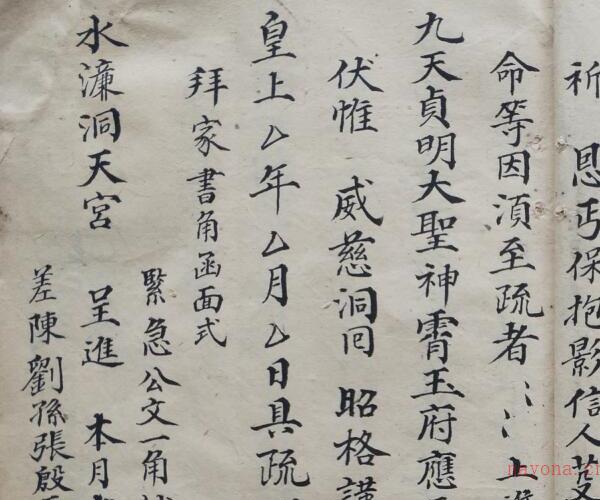 祈　恩丐保抱影信人
命等因湏至疏者　上
九天貞明大聖神霄玉府應
伏惟　威慈洞回　昭格謹
皇上厶年厶月厶日具疏
拜家書角函面式
緊急公文一角
水濂洞天宮　呈進　本月
差陳劉孫張殷
nayona.cn